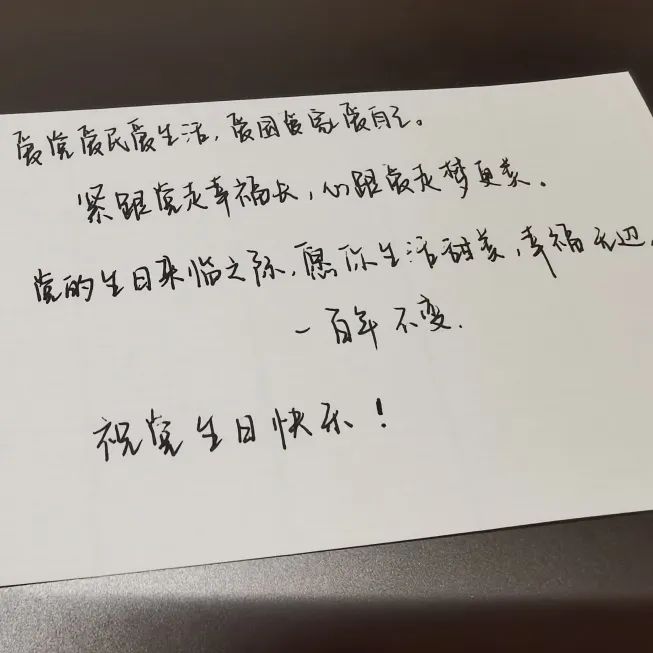 爱党爱民爱生活,爱国爱家爱自己。
紧跟党走幸福长,心跟党走梦更美.
党的生日来临之际,愿你生活甜美,幸福无边,
一百年不变.
祝党生日快乐!